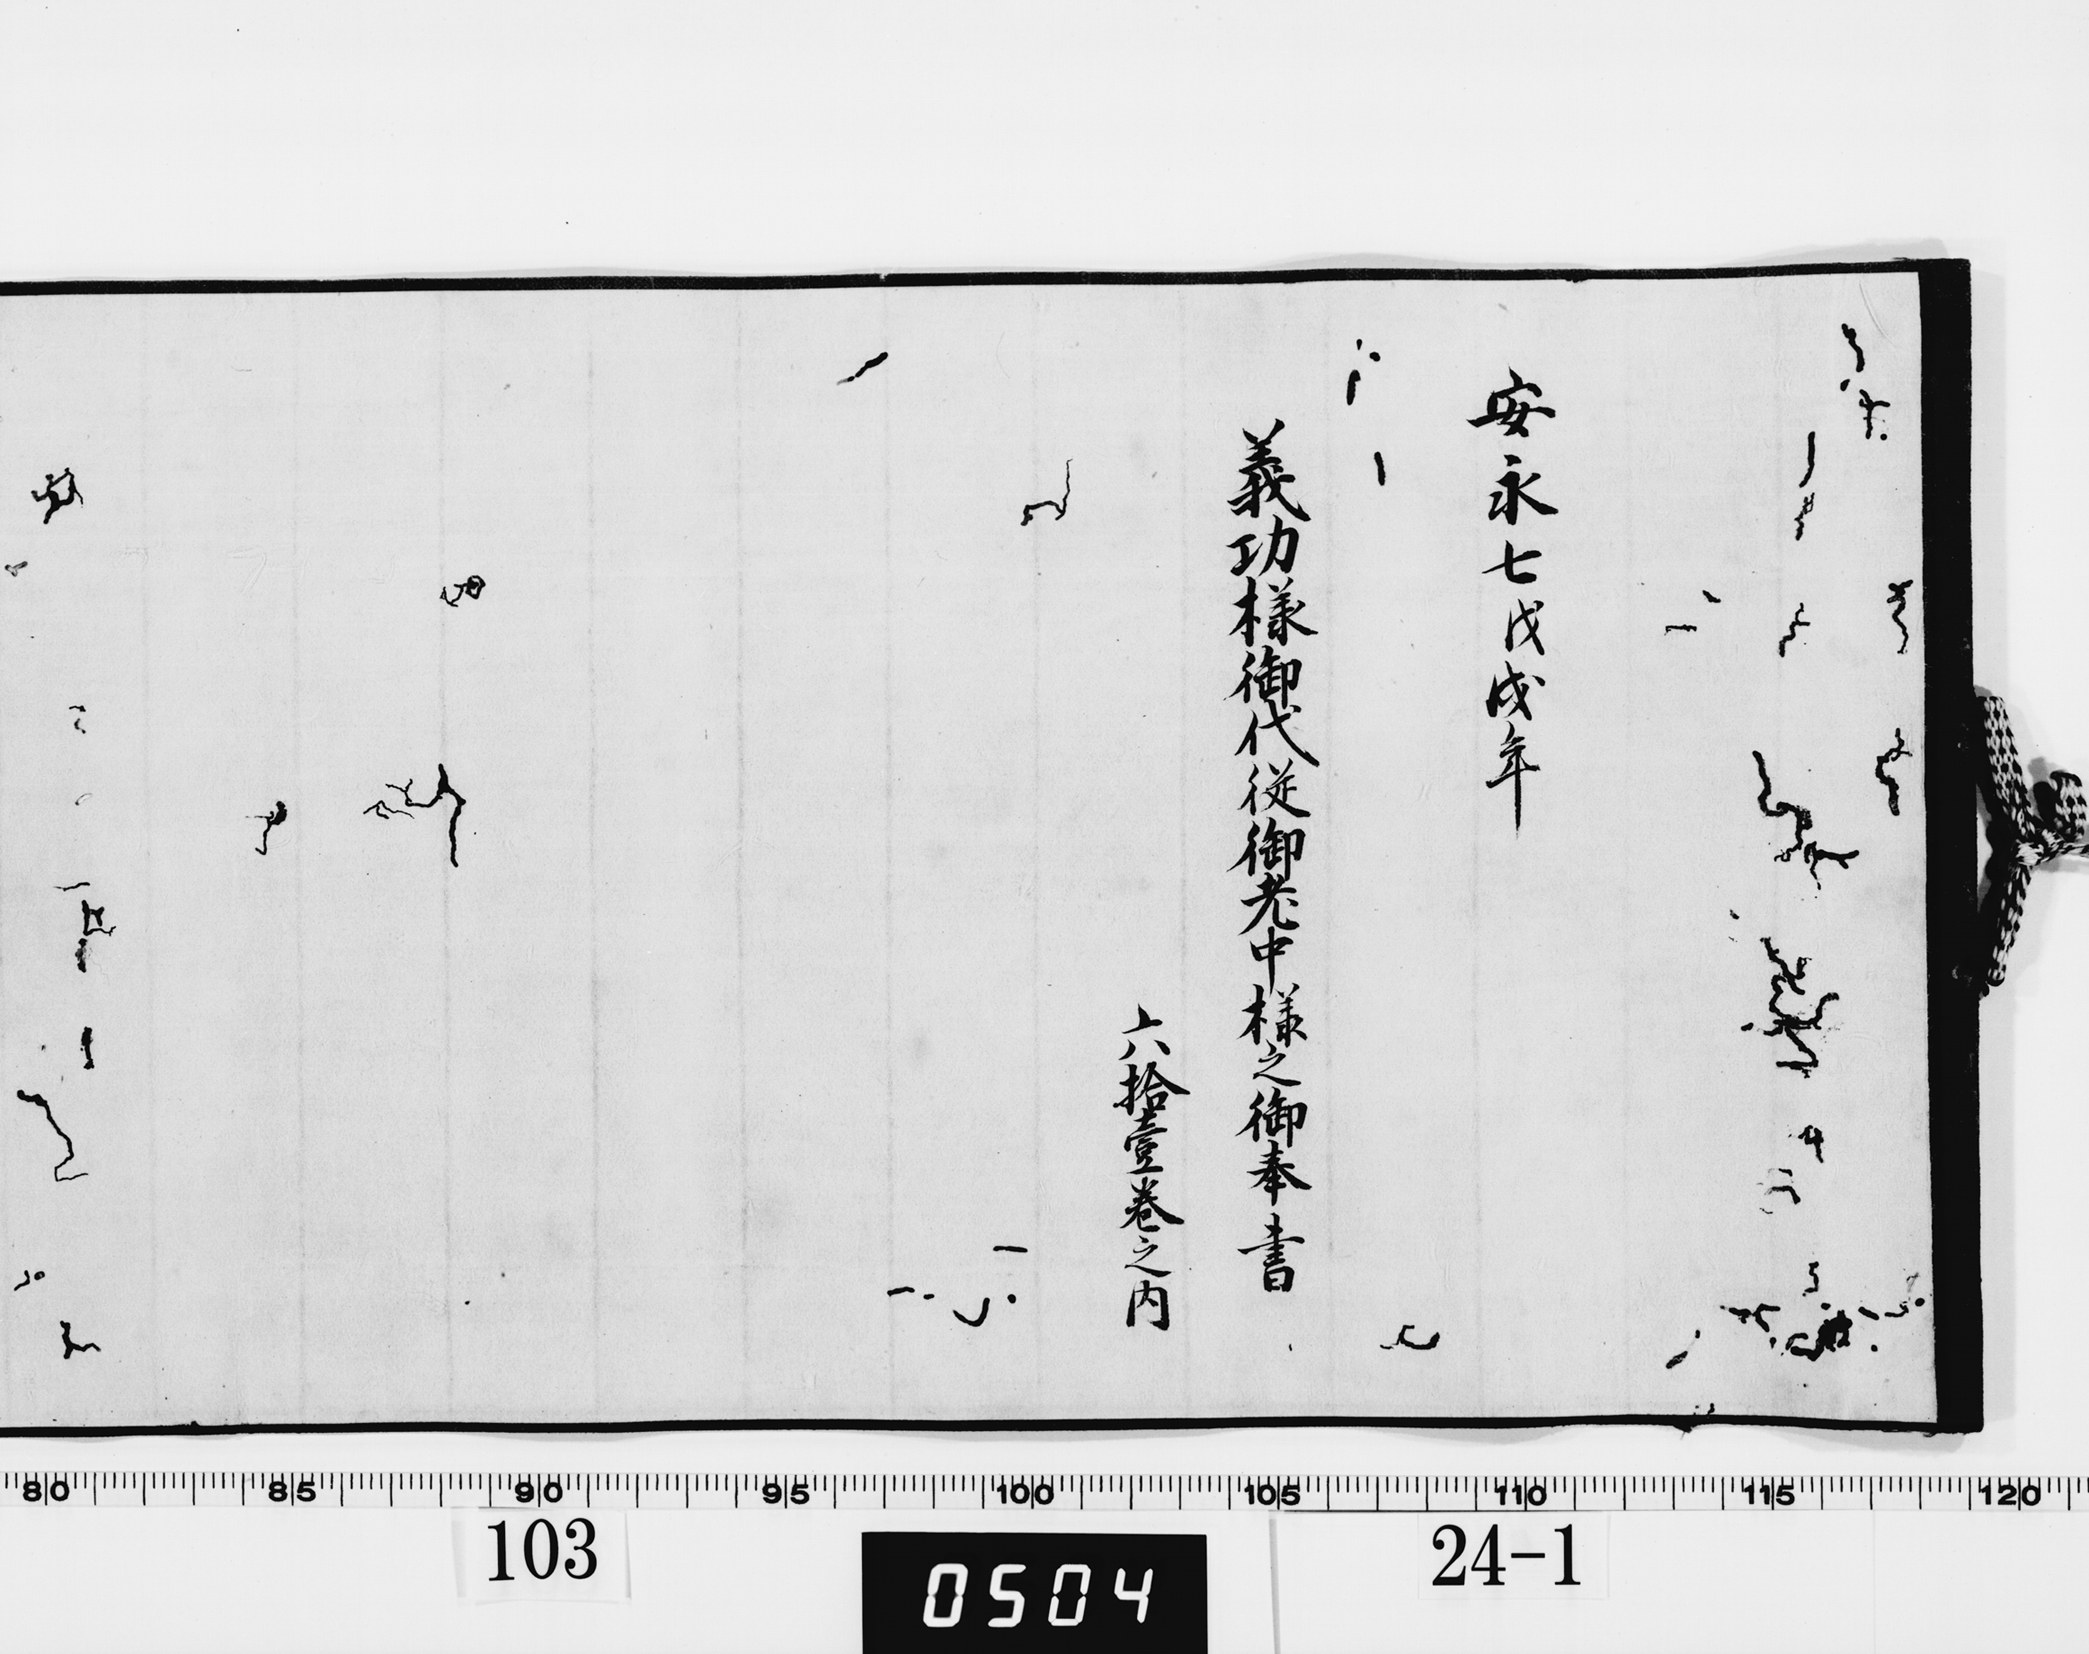 安永七戊戌年
義功様御代従御老中様之御奉書
六拾壹巻之内
80 85 90 95 100 105 110 115 120
103
0504
24-1